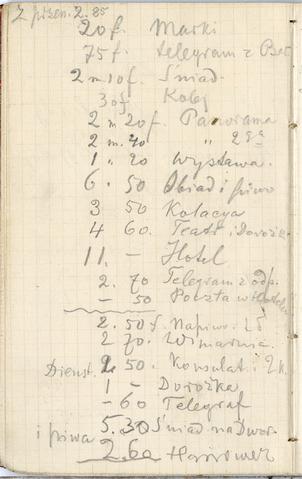 Z przen. 2.85
20 f. Marki
75 f. telegram z Ber
2 m 10 f. Śniad.
30 f Kolej
2 m 20 f. Panorama
2 m. 40 " 2ga
1 " 20 Wystawa.
6. 50 Obiad i piwo
3 50 Kolacya
4 60. Teatr i Dorożk.
11. – Hotel
2. 70 Telegram z odp.
– 50 Poczta w Hotelu
2. 50 f. Napiw.
2 70. Winiarnia.
Dienst. 2 50. Konsulat i
1 – Dorożka
– 60 Telegraf
5.30 Śniad na Dwor.
i piwa
2.60 Hanower